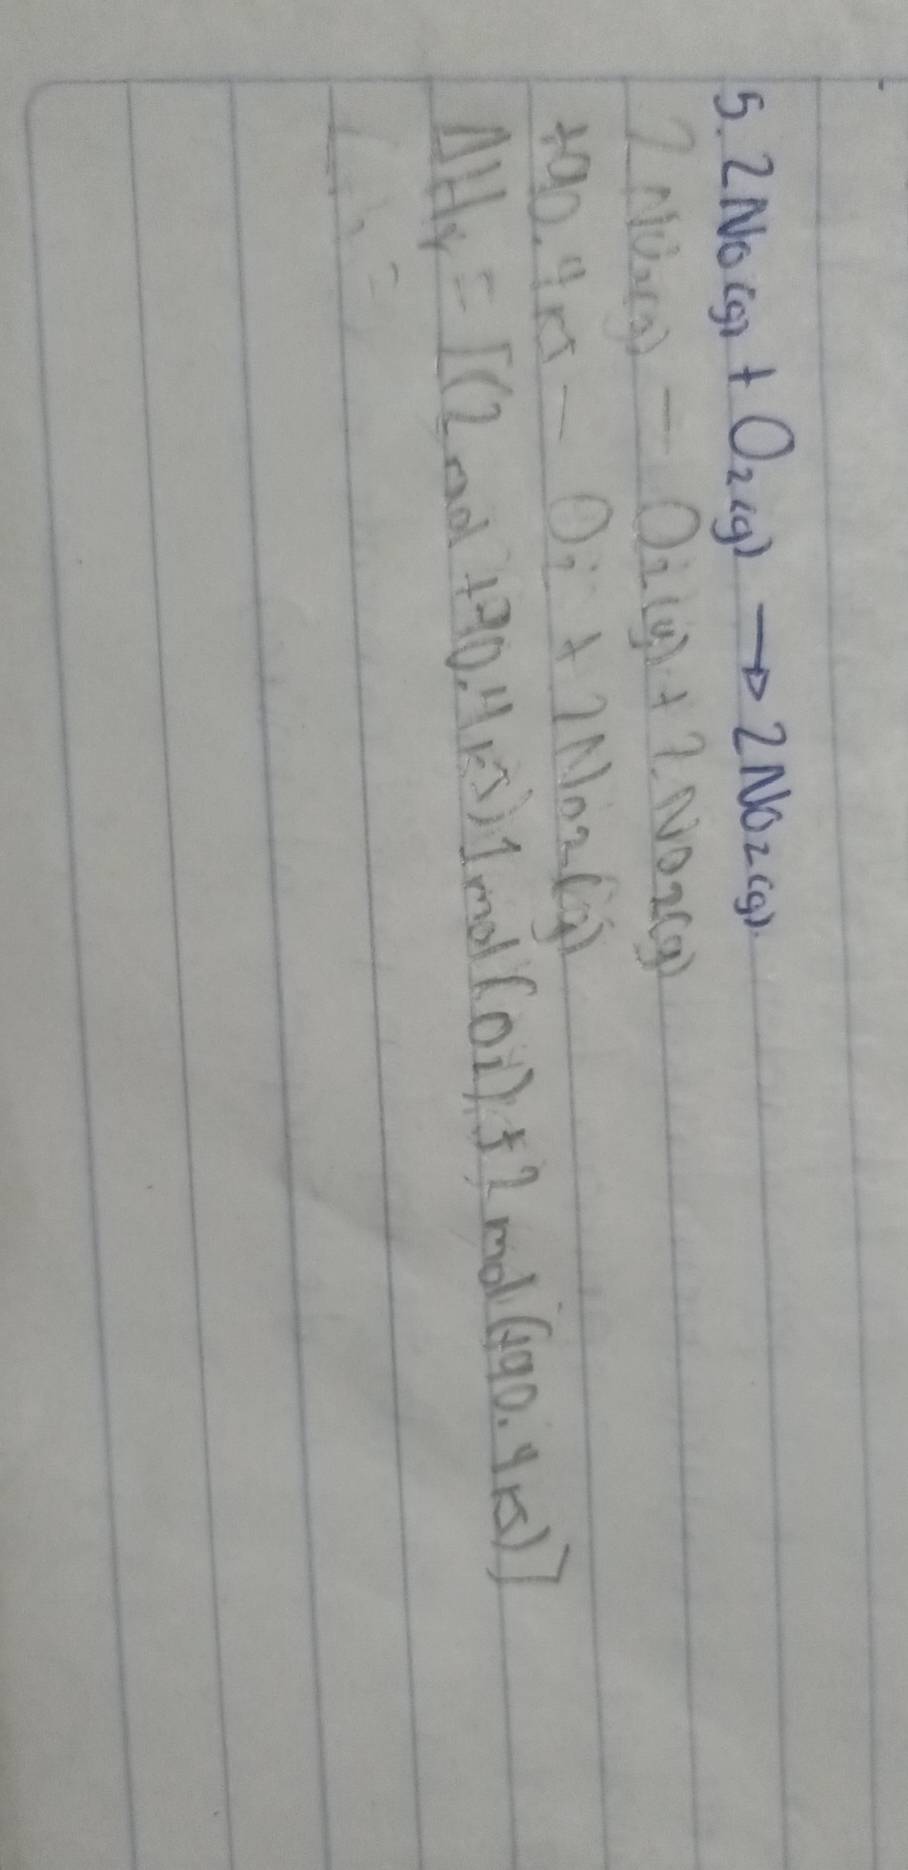 5. 2No(g) + O2(g) → 2NO2(g).
2NO2(g) - O2(g) + 2NO2(g)
+90.4KJ - O2 + 2No2(g)
ΔHr = [(2 mol +90.4KJ) 1 mol (O2) + 2 mol (+90.4KJ)]
=